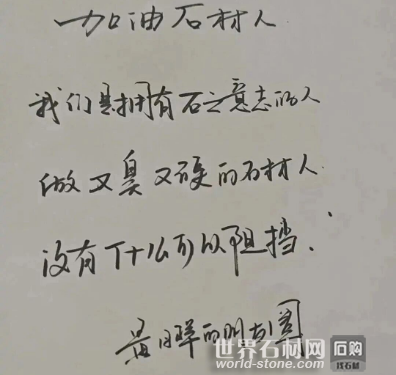 加油石材人
我们是拥有石之意志的人
做又臭又硬的石材人
没有什么可以阻挡.
世界石材网
world-stone.com
石购
找石材